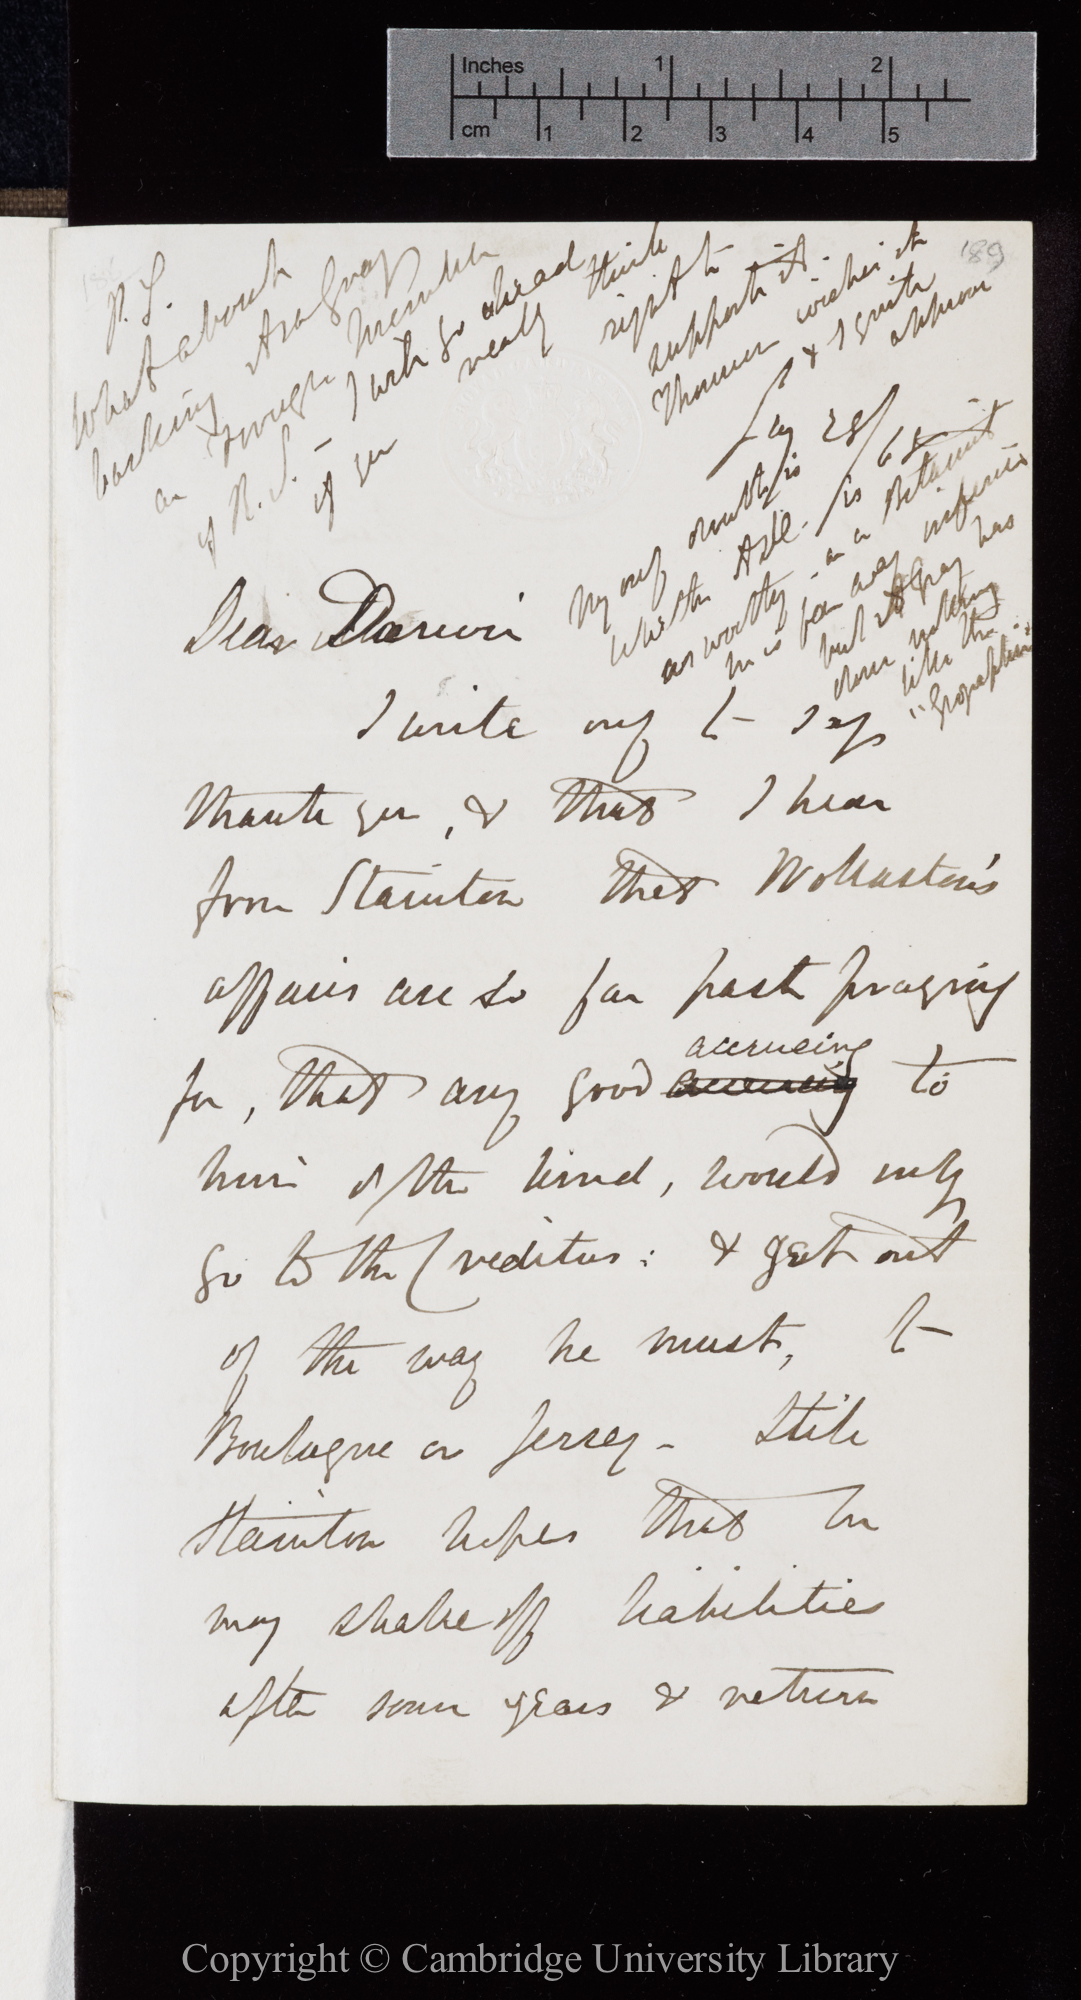 Inches 1 2
cm 1 2 3 4 5
189
P.S.
What about
backing Asa Gray
as Foreign Member
of R.S. — I will go ahead
if you really think
right to
support it.
Thomson wishes it
& I quite
approve
My only doubt is
whether ADC. is
as worthy — as a Botanist
he is far away inferior
but A Gray has
done nothing
like the
"Geographie".
28/68
Dear Darwin
I write only to say
thank you, & that I hear
from Stainton that Wollaston's
affairs are so far past praying
for, that any good accrueing to
him of the kind, would only
go to the Creditors: & get out
of the way he must, to
Boulogne or Jersey — Still
Stainton hopes that he
may shake off liabilities
after some years & return
Copyright © Cambridge University Library